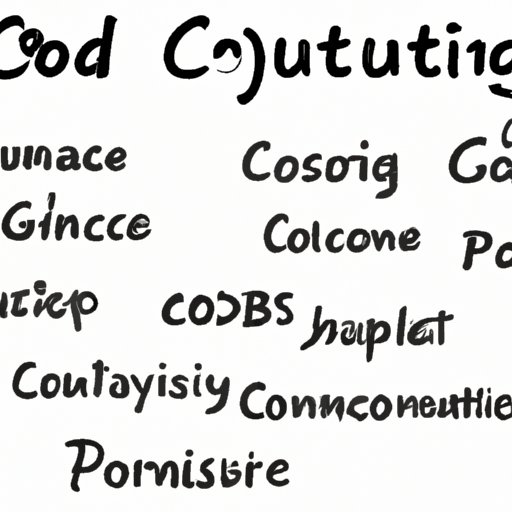 Cood Coyututing
umace Cosoig Ga
Gincce Colcone Po
utiep COOBS Jhaplat
Coultayisiy Connmconeuthie
Pornisire